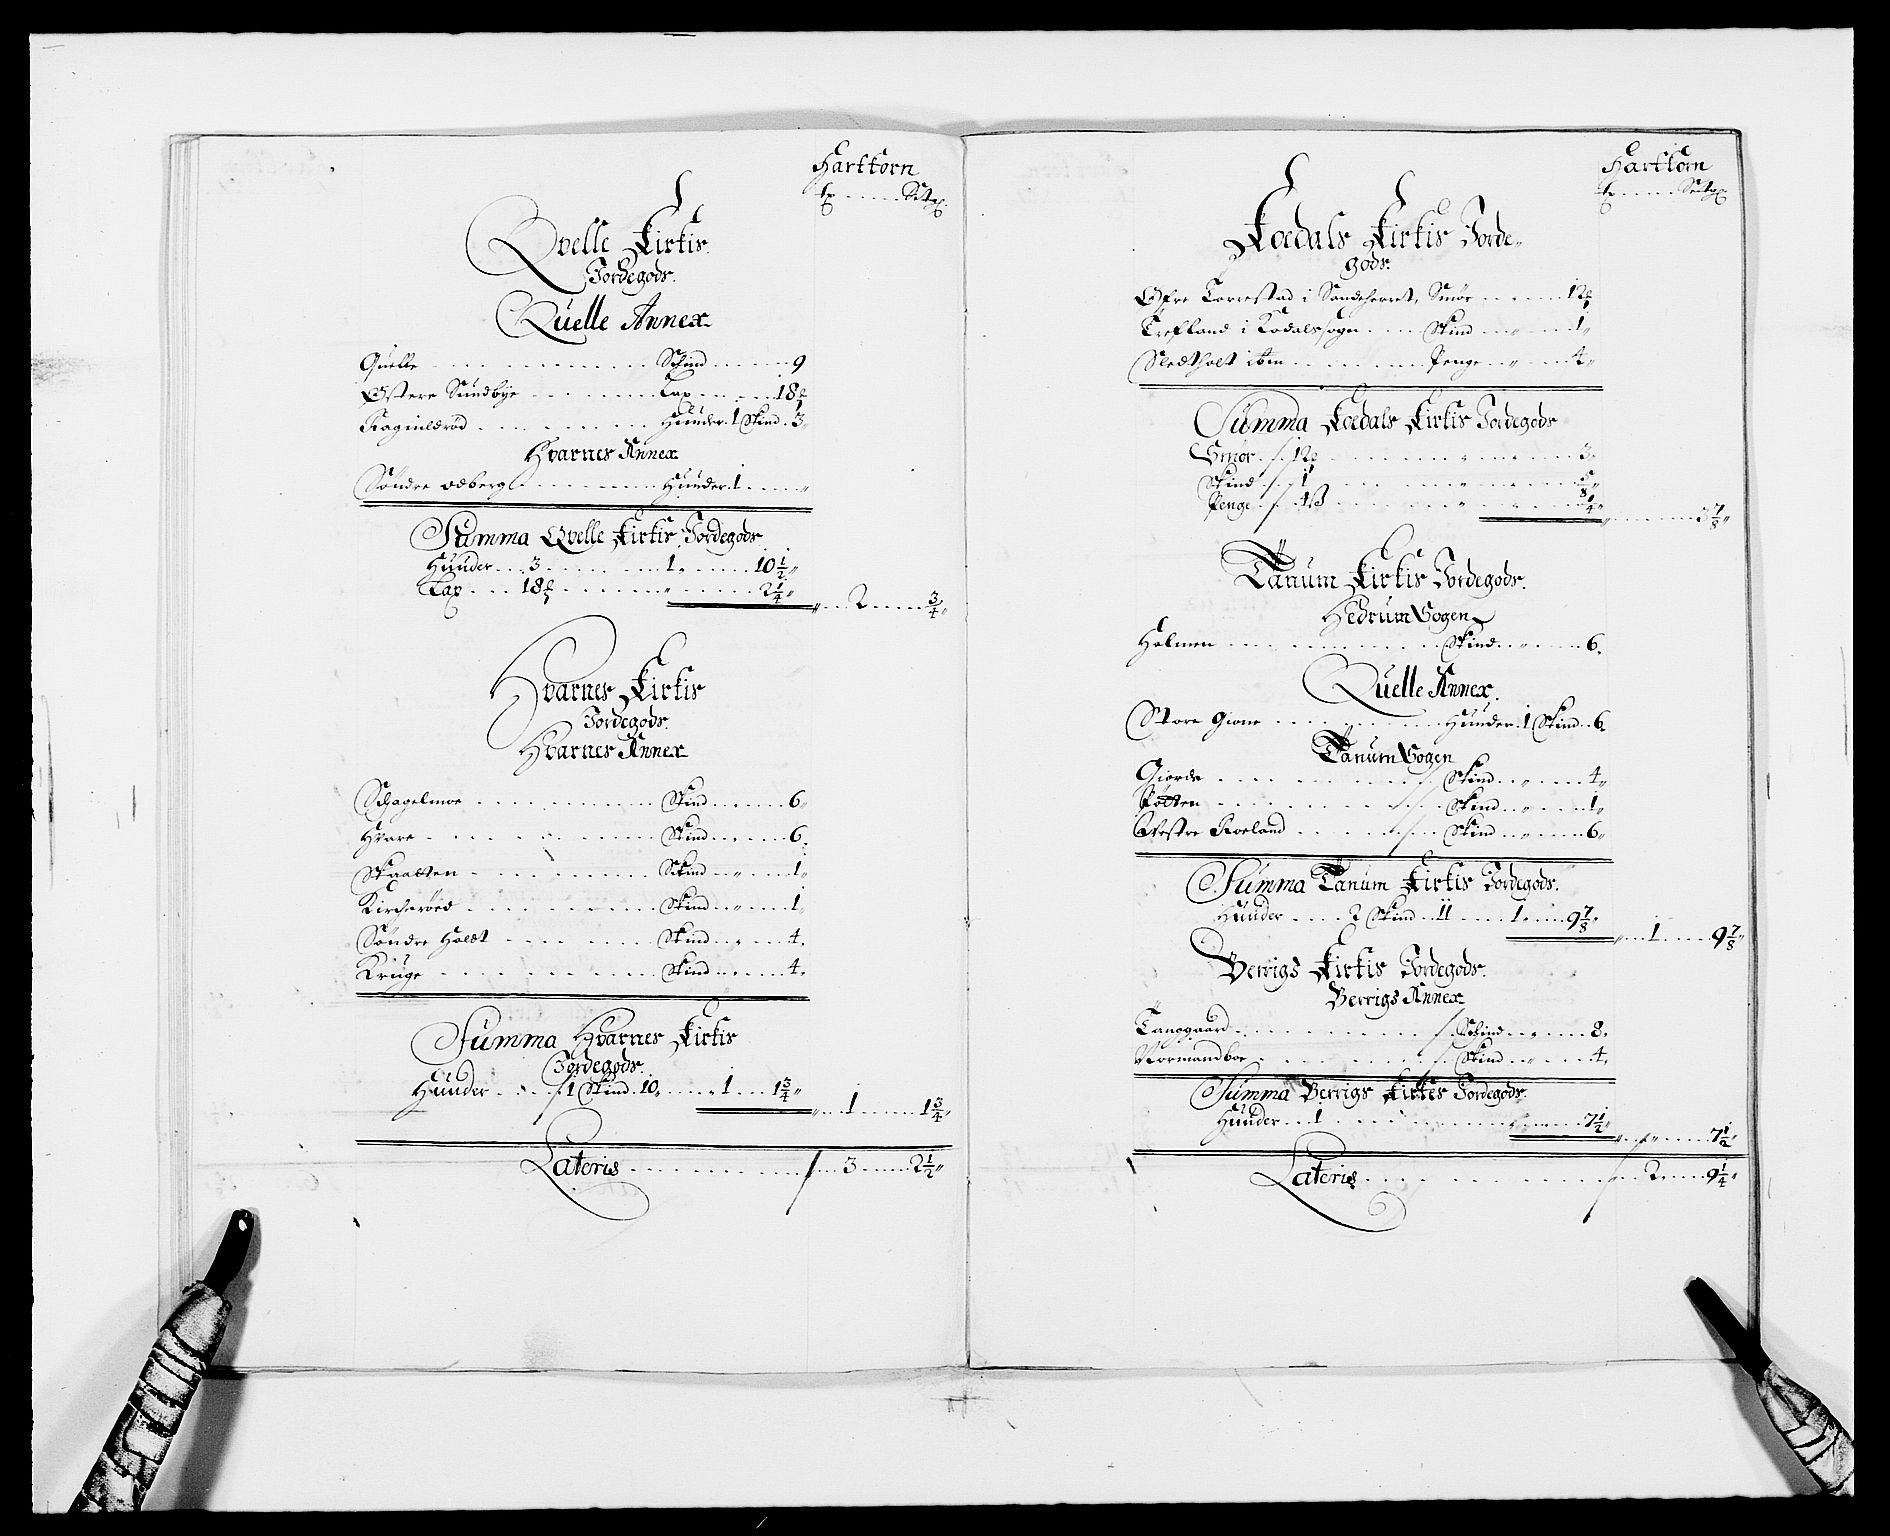 Harttorn
Qvelle Kirkis
Jordegods.
Quelle Annex
Quelle Schind 9
Østere Sundbye Lax 18
Raginlerød Huuder 1 Skind 3
Hvarnes Annex
Søndre odberg Huuder 1
Summa Qvelle Kirkis Jordegods
Huuder 3 1 10 1/2
Lax 18 2 1/4 2 3/4
Hvarnes Kirkis
Jordegods.
Hvarnes Annex
Schagelmoe Skind 6
Hvare Skind 6
Skaatten Skind 1
Kircherøed Skind 1
Søndre Holdt Skind 4
Kruge Skind 4
Summa Hvarnes Kirkis
Jordegods.
Huuder 1 Skind 10 1 1 3/4 1 1 3/4
Lateris 3 2 1/2
Harttorn
Koedals Kirkis Jorde-
gods.
Øfre Torrestad i Sandeherret, Smør 12
Trefland i Kodalssogn Skind 1
Sledtholt ibm Penge 4
Summa Koedals Kirkis Jordegods
Smør 12 3
Skind 1 5/8
Penge 4 ß 1/4 3 7/8
Tanum Kirkis Jordegods.
Hedrum Sogen
Holmen Skind 6
Quelle Annex.
Store Gione Huuder 1 Skind 6
Tanum Sogen
Giorde Skind 4
Pøtten Skind 1
Vestre Roeland Skind 6
Summa Tanum Kirkis Jordegods.
Huuder 2 Skind 11 1 9 7/8 1 9 7/8
Berrigs Kirkis Jordegods.
Berrigs Annex
Tanggaard Schind 8
Normandboe Skind 4
Summa Berrigs Kirkes Jordegods.
Huuder 1 7 1/2 7 1/2
Lateris 2 9 1/4